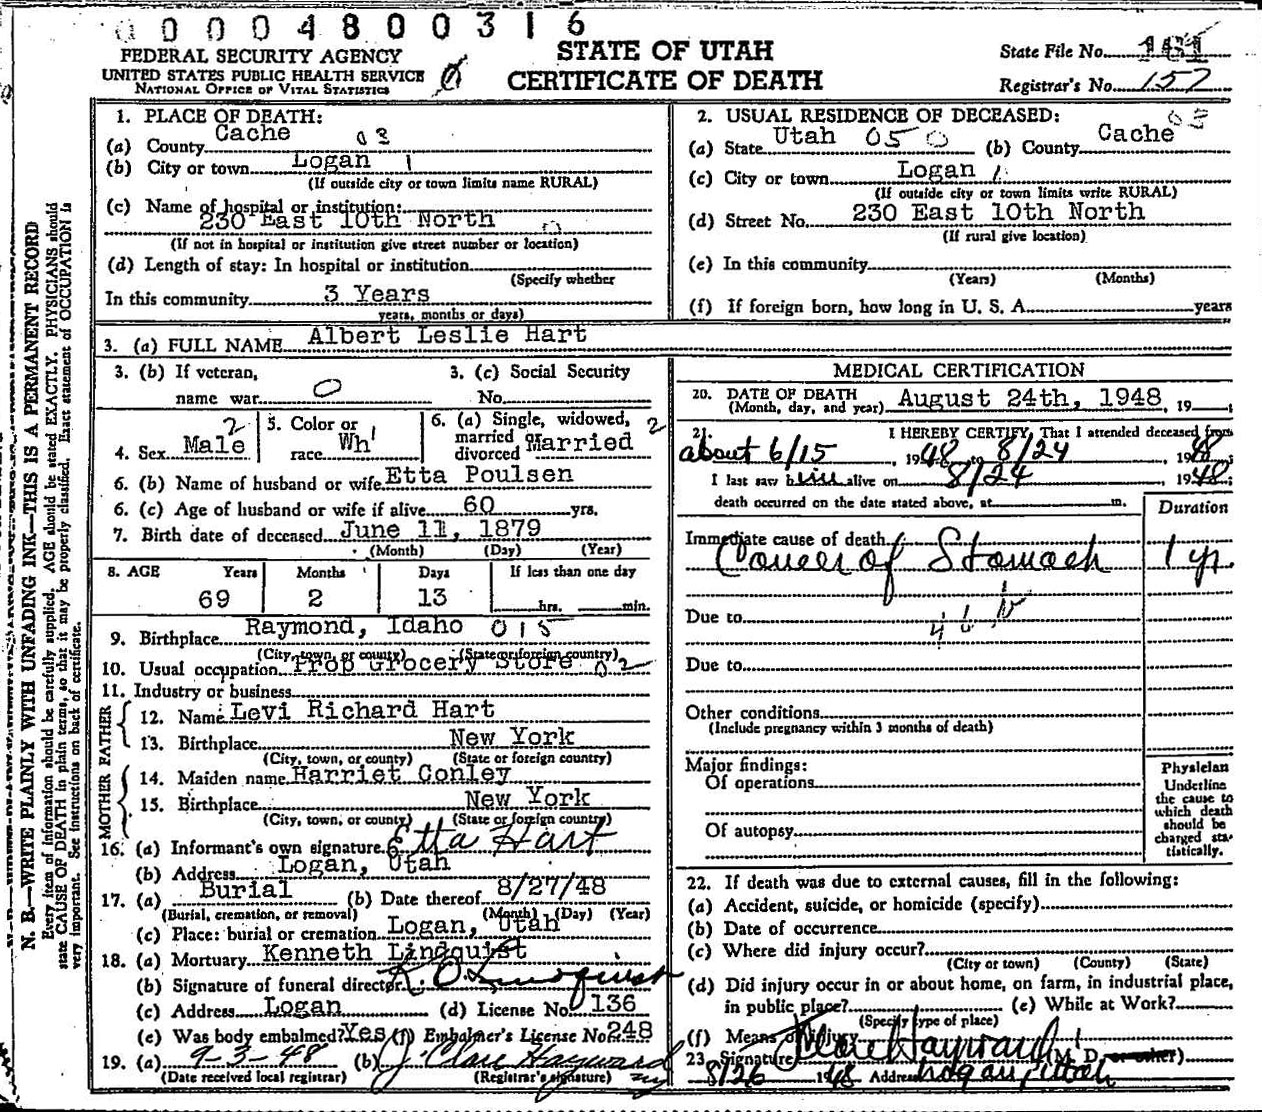 00004800316
FEDERAL SECURITY AGENCY
UNITED STATES PUBLIC HEALTH SERVICE
NATIONAL OFFICE OF VITAL STATISTICS
STATE OF UTAH
CERTIFICATE OF DEATH
State File No. 161
Registrar's No. 157
N. B.—WRITE PLAINLY WITH UNFADING INK—THIS IS A PERMANENT RECORD
Every item of information should be carefully supplied. AGE should be stated EXACTLY. PHYSICIANS should
state CAUSE OF DEATH in plain terms, so that it may be properly classified. Exact statement of OCCUPATION is
very important. See instructions on back of certificate.
1. PLACE OF DEATH:
(a) County Cache 03
(b) City or town Logan 1
(If outside city or town limits name RURAL)
(c) Name of hospital or institution:
230 East 10th North
(If not in hospital or institution give street number or location)
(d) Length of stay: In hospital or institution
(Specify whether
In this community 3 Years
years, months or days)
2. USUAL RESIDENCE OF DECEASED:
(a) State Utah 050 (b) County Cache 03
(c) City or town Logan 1
(If outside city or town limits write RURAL)
(d) Street No. 230 East 10th North
(If rural give location)
(e) In this community
(Years) (Months)
(f) If foreign born, how long in U. S. A. years
3. (a) FULL NAME Albert Leslie Hart
3. (b) If veteran, name war 0
3. (c) Social Security No.
4. Sex Male 2
5. Color or race Wh 1
6. (a) Single, widowed, married or divorced Married 2
6. (b) Name of husband or wife Etta Poulsen
6. (c) Age of husband or wife if alive 60 yrs.
7. Birth date of deceased June 11, 1879
(Month) (Day) (Year)
8. AGE Years Months Days If less than one day
69 2 13 hrs. min.
9. Birthplace Raymond, Idaho 015
(City, town, or county) (State or foreign country)
10. Usual occupation Prop Grocery Store 02
11. Industry or business
FATHER
12. Name Levi Richard Hart
13. Birthplace New York
(City, town, or county) (State or foreign country)
MOTHER
14. Maiden name Harriet Conley
15. Birthplace New York
(City, town, or county) (State or foreign country)
16. (a) Informant's own signature Etta Hart
(b) Address Logan, Utah
17. (a) Burial (b) Date thereof 8/27/48
(Burial, cremation, or removal) (Month) (Day) (Year)
(c) Place: burial or cremation Logan, Utah
18. (a) Mortuary Kenneth Lindquist
(b) Signature of funeral director K. O. Lindquist
(c) Address Logan (d) License No. 136
(e) Was body embalmed? Yes (f) Embalmer's License No. 248
19. (a) 9-3-48 (b) J. Clare Hayward
(Date received local registrar) (Registrar's signature)
MEDICAL CERTIFICATION
20. DATE OF DEATH
(Month, day, and year) August 24th, 1948, 19
21. I HEREBY CERTIFY, That I attended deceased from
about 6/15, 1948, to 8/24, 1948;
I last saw him alive on 8/24, 1948;
death occurred on the date stated above, at m.
Duration
Immediate cause of death
Cancer of Stomach 1 yr.
Due to
46b
Due to
Other conditions
(Include pregnancy within 3 months of death)
Major findings:
Of operations
Of autopsy
Physician
Underline
the cause to
which death
should be
charged sta-
tistically.
22. If death was due to external causes, fill in the following:
(a) Accident, suicide, or homicide (specify)
(b) Date of occurrence
(c) Where did injury occur?
(City or town) (County) (State)
(d) Did injury occur in or about home, on farm, in industrial place,
in public place? (e) While at Work?
(Specify type of place)
(f) Means of injury
23. Signature J Clare Hayward (M. D. or other)
8/26 1948 Address Logan, Utah